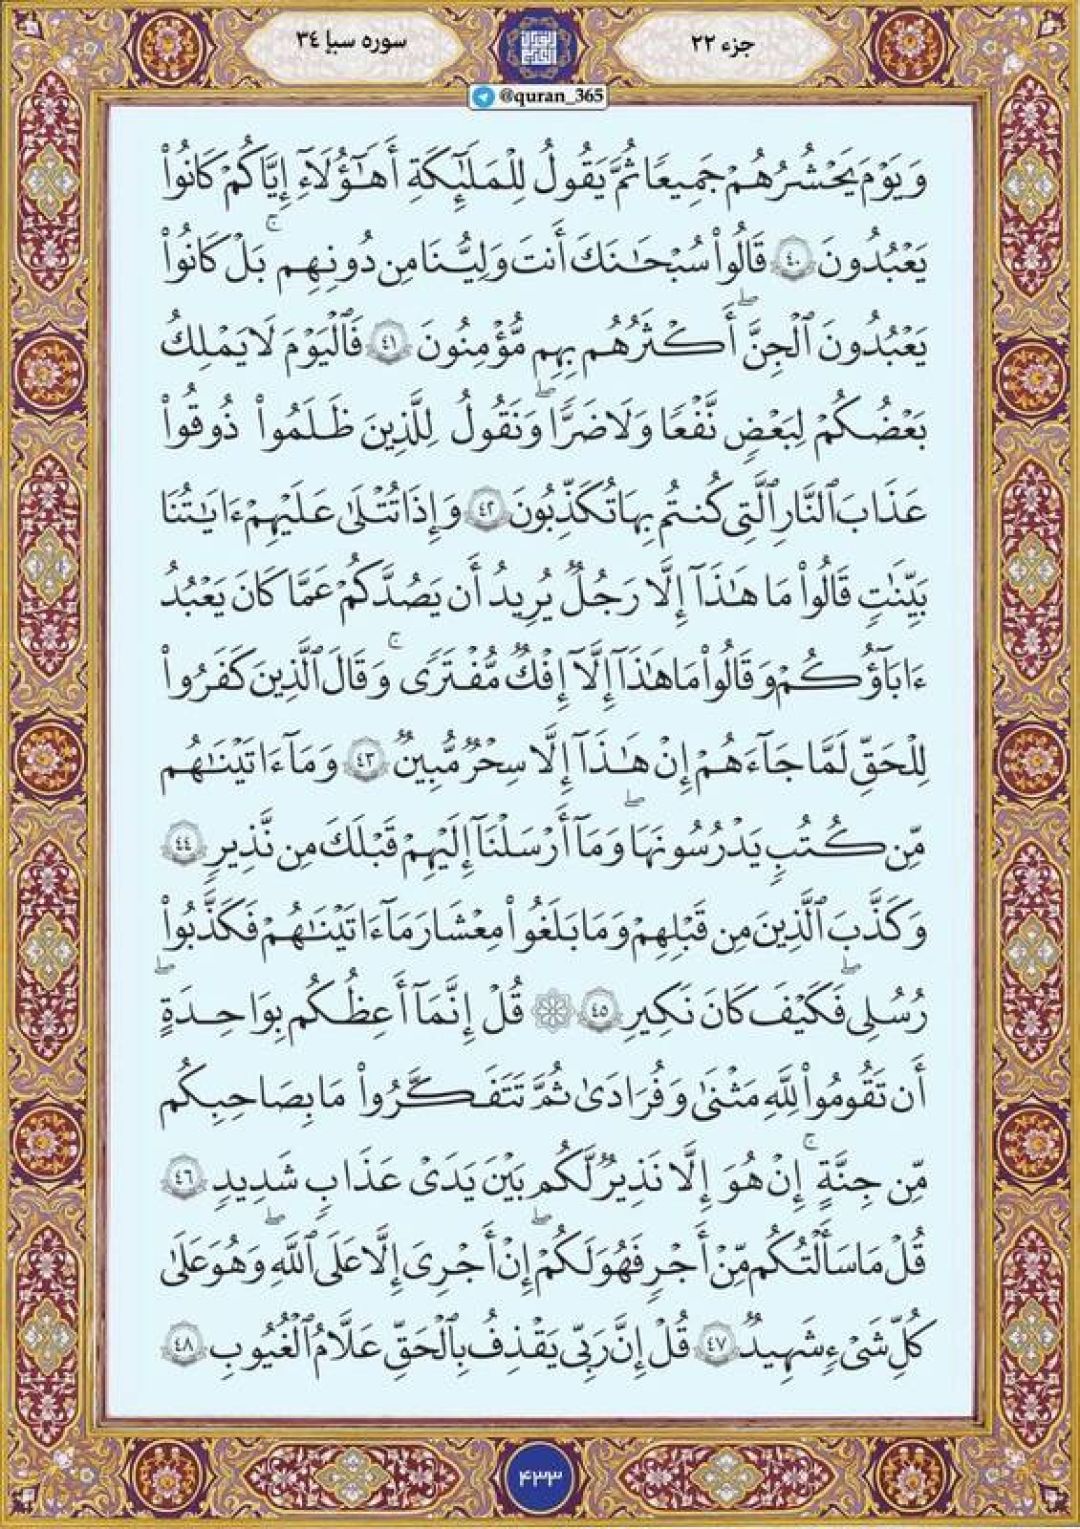 جزء ٢٢
سوره سبإ ٣٤
@quran_365
وَيَوْمَ يَحْشُرُهُمْ جَمِيعًا ثُمَّ يَقُولُ لِلْمَلَٰٓئِكَةِ أَهَٰٓؤُلَآءِ إِيَّاكُمْ كَانُوا۟
يَعْبُدُونَ ٤٠ قَالُوا۟ سُبْحَٰنَكَ أَنتَ وَلِيُّنَا مِن دُونِهِم ۖ بَلْ كَانُوا۟
يَعْبُدُونَ ٱلْجِنَّ ۖ أَكْثَرُهُم بِهِم مُّؤْمِنُونَ ٤١ فَٱلْيَوْمَ لَا يَمْلِكُ
بَعْضُكُمْ لِبَعْضٍ نَّفْعًا وَلَا ضَرًّا ۖ وَنَقُولُ لِلَّذِينَ ظَلَمُوا۟ ذُوقُوا۟
عَذَابَ ٱلنَّارِ ٱلَّتِى كُنتُم بِهَا تُكَذِّبُونَ ٤٢ وَإِذَا تُتْلَىٰ عَلَيْهِمْ ءَايَٰتُنَا
بَيِّنَٰتٍ قَالُوا۟ مَا هَٰذَآ إِلَّا رَجُلٌ يُرِيدُ أَن يَصُدَّكُمْ عَمَّا كَانَ يَعْبُدُ
ءَابَآؤُكُمْ وَقَالُوا۟ مَا هَٰذَآ إِلَّآ إِفْكٌ مُّفْتَرًى ۚ وَقَالَ ٱلَّذِينَ كَفَرُوا۟
لِلْحَقِّ لَمَّا جَآءَهُمْ إِنْ هَٰذَآ إِلَّا سِحْرٌ مُّبِينٌ ٤٣ وَمَآ ءَاتَيْنَٰهُم
مِّن كُتُبٍ يَدْرُسُونَهَا ۖ وَمَآ أَرْسَلْنَآ إِلَيْهِمْ قَبْلَكَ مِن نَّذِيرٍ ٤٤
وَكَذَّبَ ٱلَّذِينَ مِن قَبْلِهِمْ وَمَا بَلَغُوا۟ مِعْشَارَ مَآ ءَاتَيْنَٰهُمْ فَكَذَّبُوا۟
رُسُلِى ۖ فَكَيْفَ كَانَ نَكِيرِ ٤٥ ۞ قُلْ إِنَّمَآ أَعِظُكُم بِوَٰحِدَةٍ ۖ
أَن تَقُومُوا۟ لِلَّهِ مَثْنَىٰ وَفُرَٰدَىٰ ثُمَّ تَتَفَكَّرُوا۟ مَا بِصَاحِبِكُم
مِّن جِنَّةٍ ۚ إِنْ هُوَ إِلَّا نَذِيرٌ لَّكُم بَيْنَ يَدَىْ عَذَابٍ شَدِيدٍ ٤٦
قُلْ مَا سَأَلْتُكُم مِّنْ أَجْرٍ فَهُوَ لَكُمْ ۖ إِنْ أَجْرِىَ إِلَّا عَلَى ٱللَّهِ ۖ وَهُوَ عَلَىٰ
كُلِّ شَىْءٍ شَهِيدٌ ٤٧ قُلْ إِنَّ رَبِّى يَقْذِفُ بِٱلْحَقِّ عَلَّٰمُ ٱلْغُيُوبِ ٤٨
۴۳۳